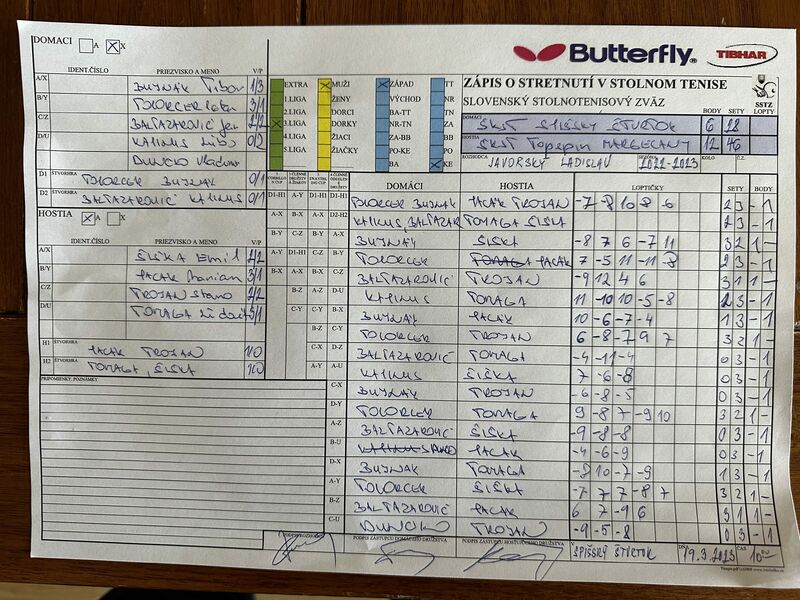 DOMACI A X
Butterfly TIBHAR
IDENT.ČÍSLO PRIEZVISKO A MENO V/P
A/X BUJNÁK Tibor 1/3
B/Y TOLORCER 3/1
C/Z BALTAZAROVIČ Jan 2/2
D/U KALINUS Ľubo 0/2
DUNČKO Vladimír
D1 ŠTVORHRA TOLORCER BUJNAK 0/1
D2 BALTAZAROVIČ KALINUS 0/1
HOSTIA A X
IDENT.ČÍSLO PRIEZVISKO A MENO V/P
A/X ŠIŠKA Emil
B/Y HACAK Marian 3/1
C/Z TROJAN Stano 2/2
D/U TOMAGA
H1 ŠTVORHRA HACAK TROJAN 1/0
H2 ŠTVORHRA TOMAGA, ŠIŠKA 1/0
PRIPOMIENKY, POZNÁMKY
EXTRA MUŽI ZÁPAD TT
1.LIGA ŽENY VÝCHOD NR
2.LIGA DORCI BA-TT TN
3.LIGA DORKY NR-TN ZA
4.LIGA ŽIACI ZA-BB BB
5.LIGA ŽIAČKY PO-KE PO
BA KE
ZÁPIS O STRETNUTÍ V STOLNOM TENISE
SLOVENSKÝ STOLNOTENISOVÝ ZVÄZ
SSTZ
BODY SETY LOPTY
DOMÁCI ŠKST SPIŠSKÝ ŠTVRTOK 6 28
HOSTIA ŠKST Topspin MARGECANY 12 46
ROZHODCA JAVORSKÝ LADISLAV 2022-2023 KOLO Č.Z.
DOMÁCI HOSTIA LOPTIČKY SETY BODY
D1-H1 TOLORCER BUJNAK HACAK TROJAN -7 -8 10 8 -6 2 3 - 1
D2-H2 KALINUS, BALTAZAR TOMAGA ŠIŠKA 2 3 - 1
A-X BUJNAK ŠIŠKA -8 7 6 -7 11 3 2 1 -
B-Y TOLORCER HACAK 7 -5 11 -11 -8 2 3 - 1
C-Z BALTAZAROVIČ TROJAN -9 12 4 6 3 1 1 -
D-U KALINUS TOMAGA 11 -10 10 -5 -8 2 3 - 1
B-X BUJNAK HACAK 10 -6 -7 -4 1 3 - 1
TOLORCER TROJAN 6 -8 -7 9 7 3 2 1 -
BALTAZAROVIČ TOMAGA -4 -11 -4 0 3 - 1
A-U KALINUS ŠIŠKA -7 -6 -8 0 3 - 1
C-X BUJNAK TROJAN -6 -8 -5 0 3 - 1
D-Y TOLORCER TOMAGA 9 -8 7 -9 10 3 2 1 -
A-Z BALTAZAROVIČ ŠIŠKA -9 -8 -8 0 3 - 1
B-U HACAK -4 -6 -9 0 3 - 1
D-X BUJNAK TOMAGA -8 10 -7 -9 1 3 - 1
A-Y TOLORCER ŠIŠKA -7 7 7 -8 7 3 2 1 -
B-Z BALTAZAROVIČ HACAK 6 7 -9 6 3 1 1 -
C-U DUNČKO TROJAN -9 -5 -8 0 3 - 1
PODPIS ROZHODCU PODPIS ZÁSTUPCU DOMÁCEHO DRUŽSTVA PODPIS ZÁSTUPCU HOSŤUJÚCEHO DRUŽSTVA
V SPIŠSKÝ ŠTVRTOK DŇA 19.3.2023 ČAS 10:00